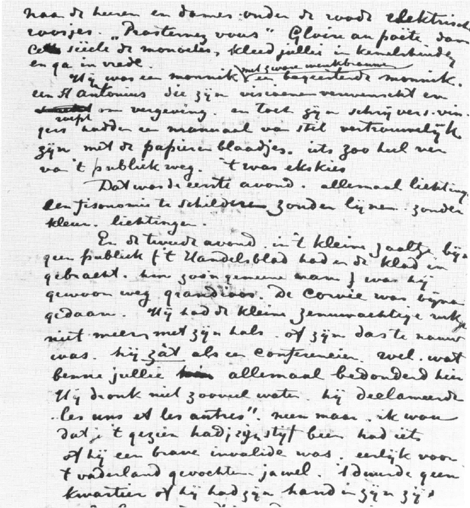 naa de heeren en dames onder de roode elektrisch
roosjes. „Prosternez vous" Gloire au poète dans
ce siècle de monocles, kleed jullie in kemelshindes
en ga in vrede.
Hij was een monnik met zware wenkbrauwen, en begeerde monnik.
een St Antonius die zijn visioenen verwenscht en
roept om vergeving. en toch zijn schrijvers vin-
gers hadden een manuaal van stil vertrouwelijk
zijn met de papieren blaadjes. iets zoo heel ver
van 't publiek weg. 't was ekskies
Dat was de eerste avond. allemaal lichting
een fisonomie te schilderen zonder lijnen. zonder
kleur. lichtingen.
En de tweede avond. in 't kleine zaaltje. bijna
geen publiek ('t Handelsblad had er de klad in
gebracht. hier zoo'n gemeene man) was hij
gewoon weg grandioos. De corvée was bijna
gedaan. Hij had de kleine zenuwachtige ruk
niet meer met zijn hals. of zijn das te nauw
was. hij zàt als een conferencier. wel. wat
benne jullie allemaal bedonderd hier
Hij dronk niet zooveel water. hij declameerde
„les uns et les autres". neen maar. ik wou
dat je 't gezien had, zijn stijf been had iets
of hij een brave invalide was. eerlijk voor
't vaderland gevochten. jawel. 't duurde geen
kwartier of hij had zijn hand in zijn zij